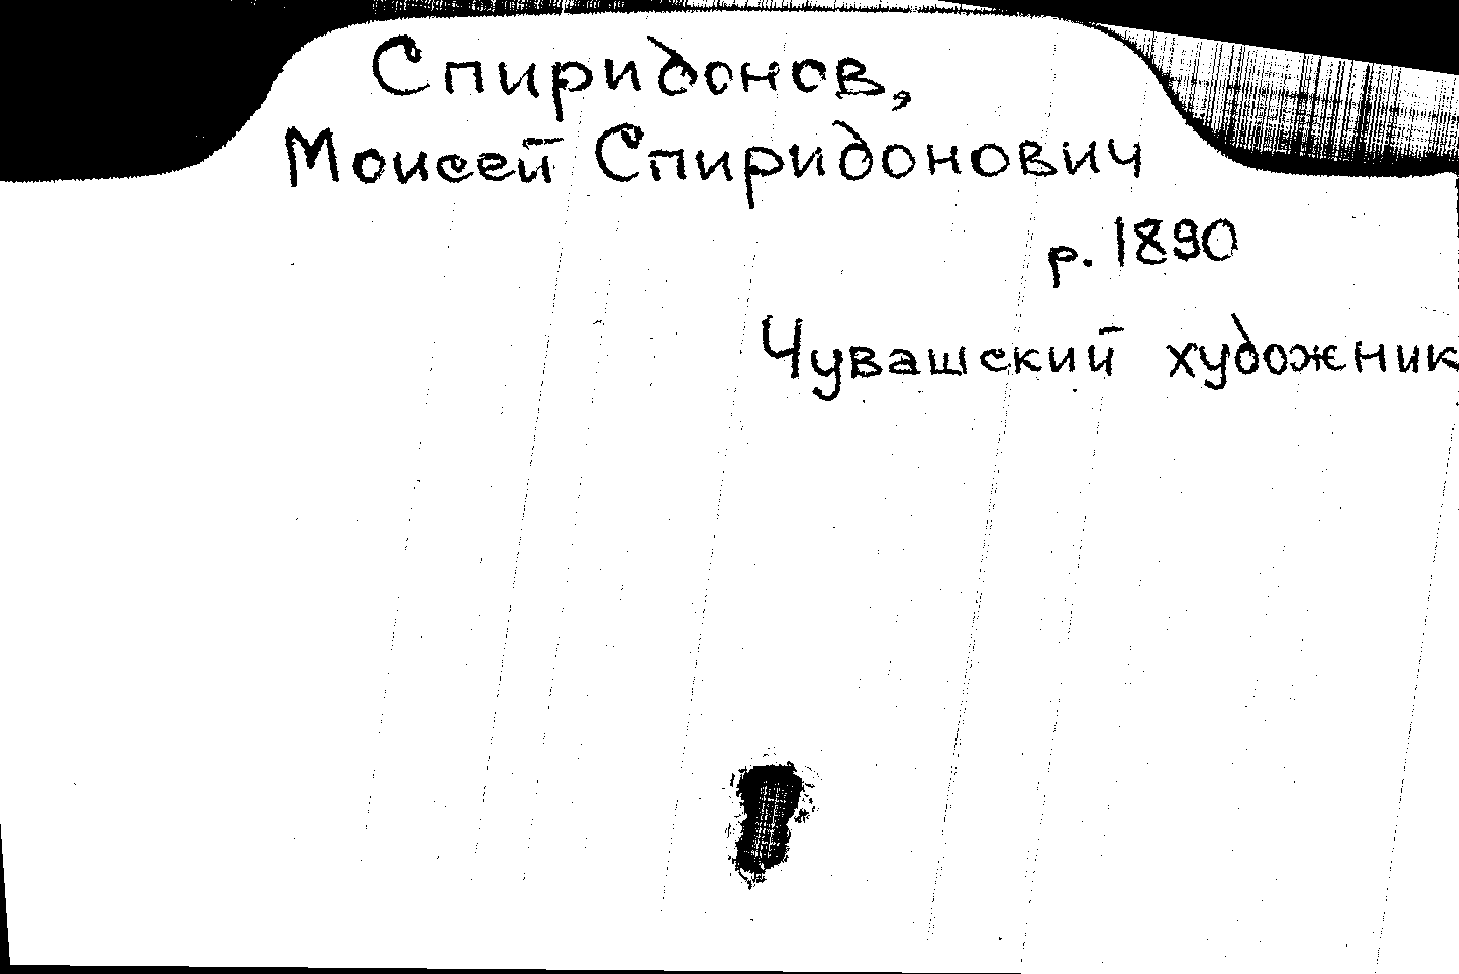 Спиридонов,
Моисей Спиридонович
р. 1890
Чувашский художник